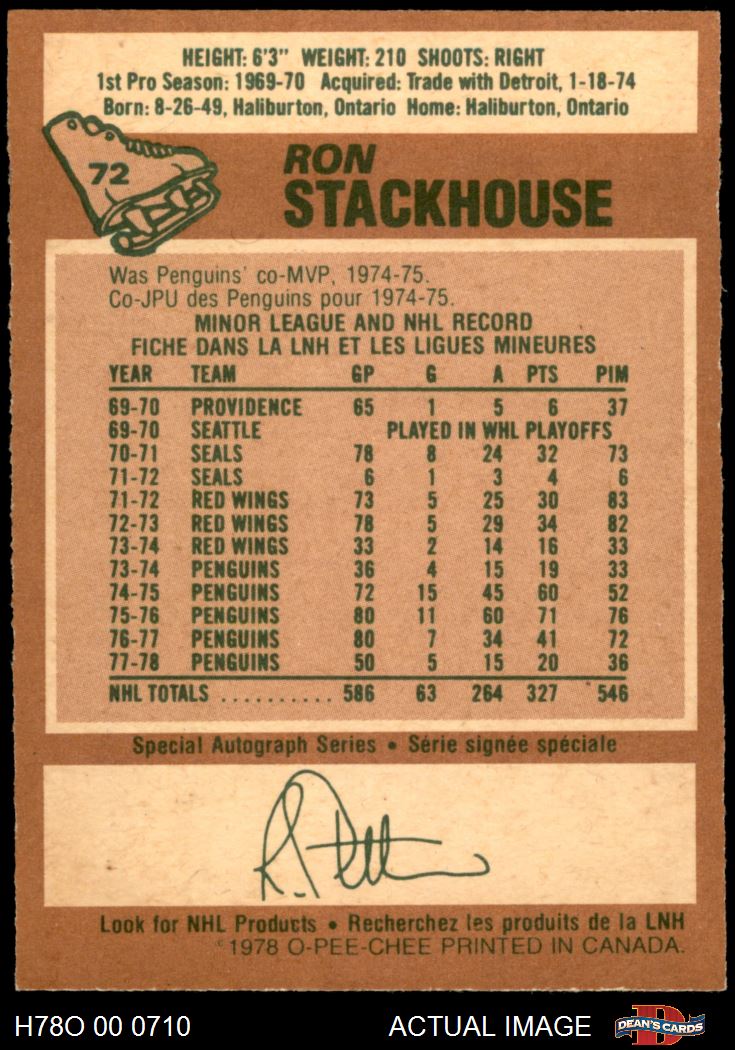 HEIGHT: 6'3" WEIGHT: 210 SHOOTS: RIGHT
1st Pro Season: 1969-70 Acquired: Trade with Detroit, 1-18-74
Born: 8-26-49, Haliburton, Ontario Home: Haliburton, Ontario
72
RON
STACKHOUSE
Was Penguins' co-MVP, 1974-75.
Co-JPU des Penguins pour 1974-75.
MINOR LEAGUE AND NHL RECORD
FICHE DANS LA LNH ET LES LIGUES MINEURES
YEAR TEAM GP G A PTS PIM
69-70 PROVIDENCE 65 1 5 6 37
69-70 SEATTLE PLAYED IN WHL PLAYOFFS
70-71 SEALS 78 8 24 32 73
71-72 SEALS 6 1 3 4 6
71-72 RED WINGS 73 5 25 30 83
72-73 RED WINGS 78 5 29 34 82
73-74 RED WINGS 33 2 14 16 33
73-74 PENGUINS 36 4 15 19 33
74-75 PENGUINS 72 15 45 60 52
75-76 PENGUINS 80 11 60 71 76
76-77 PENGUINS 80 7 34 41 72
77-78 PENGUINS 50 5 15 20 36
NHL TOTALS .......... 586 63 264 327 546
Special Autograph Series • Série signée spéciale
Look for NHL Products • Recherchez les produits de la LNH
©1978 O-PEE-CHEE PRINTED IN CANADA.
H78O 00 0710 ACTUAL IMAGE DEAN'S CARDS